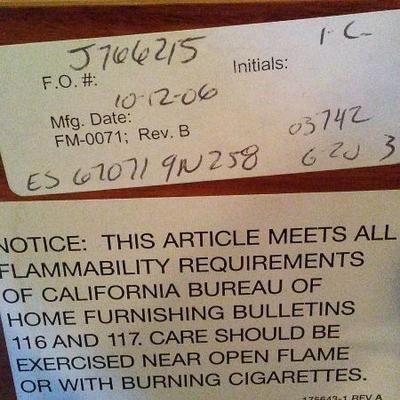 J766215
F.O. #:
Initials: 1-C
10-12-06
Mfg. Date:
FM-0071; Rev. B
03742
ES 67071 9N258
620 3
NOTICE: THIS ARTICLE MEETS ALL
FLAMMABILITY REQUIREMENTS
OF CALIFORNIA BUREAU OF
HOME FURNISHING BULLETINS
116 AND 117. CARE SHOULD BE
EXERCISED NEAR OPEN FLAME
OR WITH BURNING CIGARETTES.
175643-1 REV A